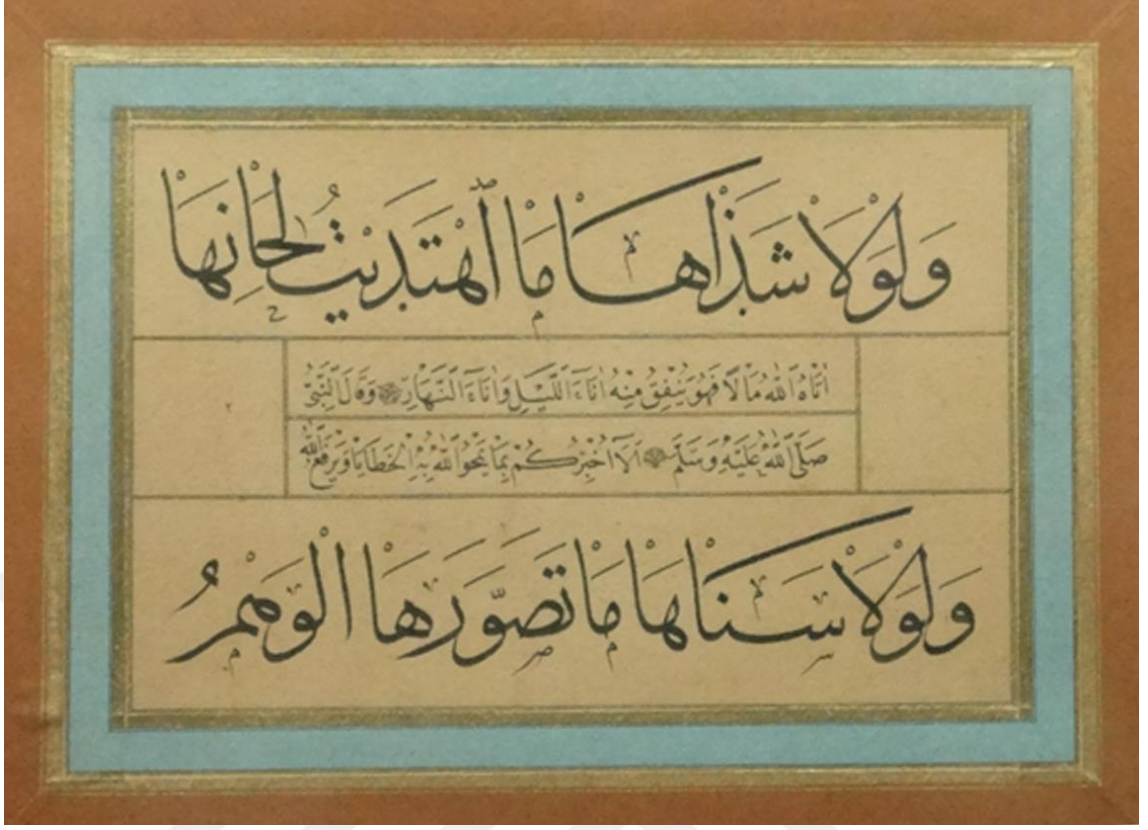 وَلَوْلَا شَذَاهَا مَا ٱهْتَدَيْتُ لِحَانِهَا
اٰتَاهُ اللّٰهُ مَالًا فَهُوَ يُنْفِقُ مِنْهُ اٰنَاءَ اللَّيْلِ وَاٰنَاءَ النَّهَارِ وَقَالَ النَّبِيُّ
صَلَّى اللّٰهُ عَلَيْهِ وَسَلَّمَ اَلَا اُخْبِرُكُمْ بِمَا يَمْحُو اللّٰهُ بِهِ الْخَطَايَا وَيَرْفَعُ اللّٰهُ
وَلَوْلَا سَنَاهَا مَا تَصَوَّرَهَا الْوَهْمُ